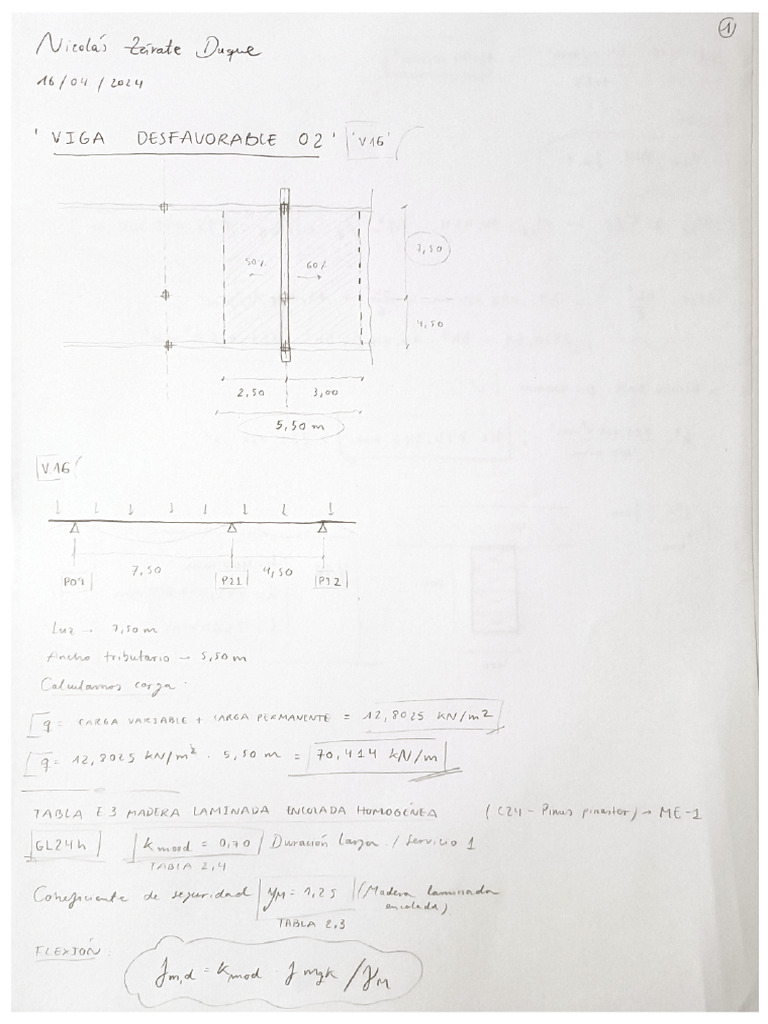 1
Nicolás Zárate Duque
16/04/2024
'VIGA DESFAVORABLE 02' 'V16'
50% 60%
7,50
4,50
2,50 3,00
5,50 m
V16
7,50 4,50
P09 P21
Luz → 7,50 m
Ancho tributario → 5,50 m
Calculamos carga.
q = CARGA VARIABLE + CARGA PERMANENTE = 12,8025 KN/m²
q = 12,8025 KN/m² · 5,50 m = 70,414 KN/m
TABLA E.3 MADERA LAMINADA ENCOLADA HOMOGÉNEA (C24 - Pinus pinaster) → ME-1
GL24h kmod = 0,70 / Duración larga / Servicio 1
TABLA 2,4
Coheficiente de seguridad γM = 1,25 (Madera laminada
encolada)
TABLA 2.3
FLEXIÓN:
fm,d = Kmod · fmgk / γM